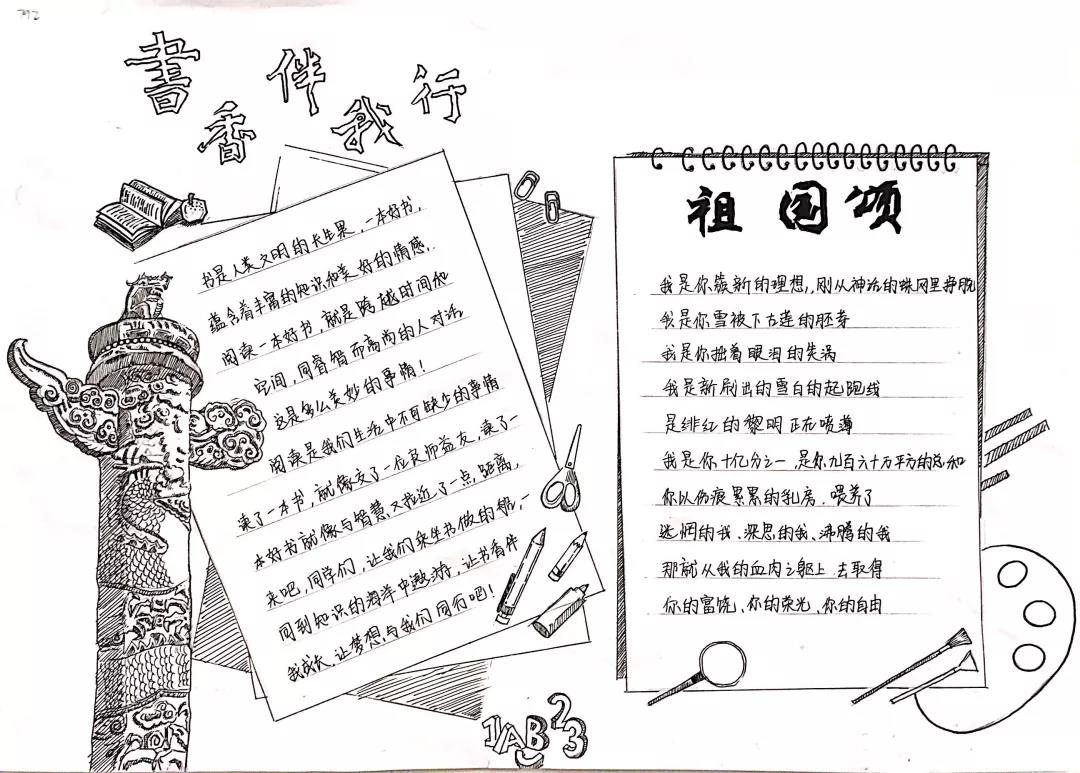 書香伴我行
书是人类文明的长生果,一本好书,
蕴含着丰富的知识和美好的情感.
阅读一本好书,就是跨越时间和
空间,同睿智而高尚的人对话,
这是多么美妙的事情!
阅读是我们生活中不可缺少的事情
读了一本书,就像交了一位良师益友,读了一
本好书就像与智慧又拉近了一点距离,
来吧,同学们,让我们乘坐书做的船,一
同到知识的海洋中遨游,让书香伴
我成长,让梦想与我们同行吧!
1AB23
祖国颂
我是你簇新的理想,刚从神话的蛛网里挣脱
我是你雪被下古莲的胚芽
我是你挂着眼泪的笑涡
我是新刷出的雪白的起跑线
是绯红的黎明正在喷薄
我是你十亿分之一,是你九百六十万平方的总和
你以伤痕累累的乳房,喂养了
迷惘的我、深思的我、沸腾的我
那就从我的血肉之躯上去取得
你的富饶、你的荣光、你的自由